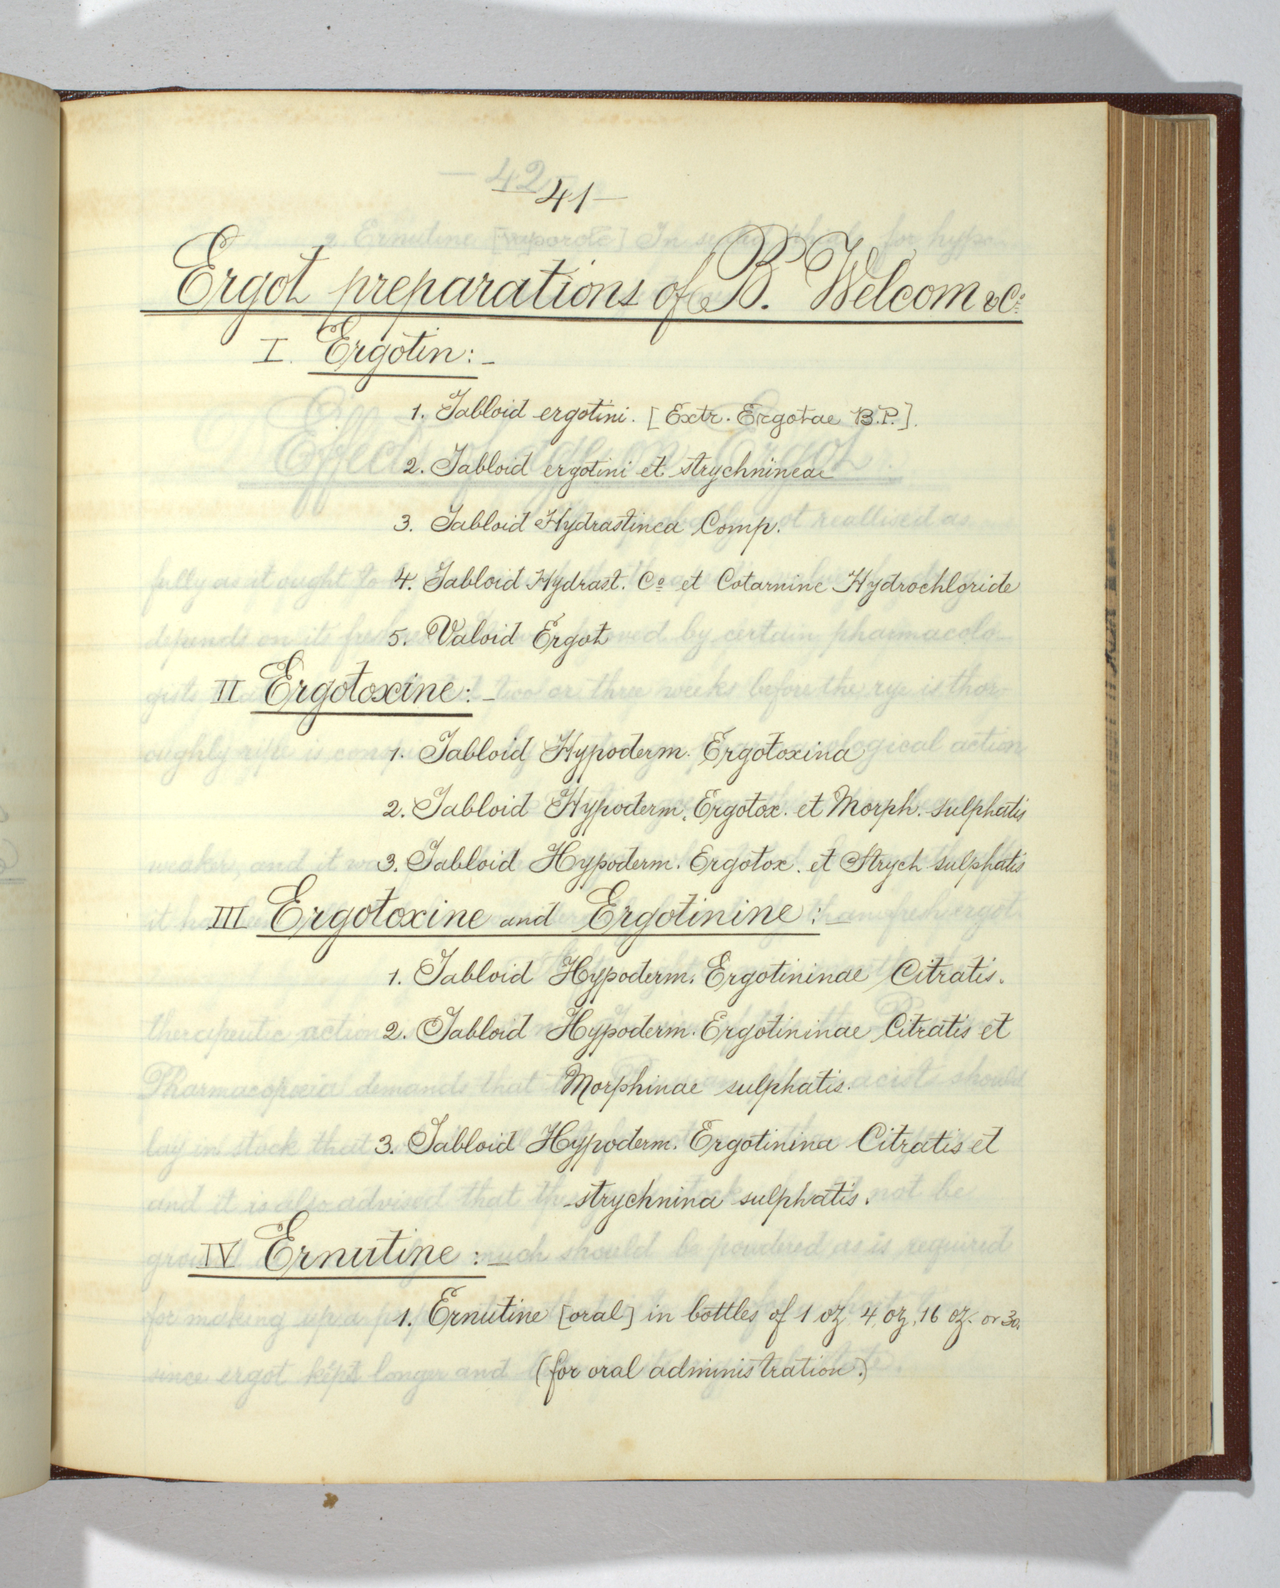 41—
Ergot preparations of B. Welcom & Co.
I. Ergotin:-
1. Tabloid ergotini. [Extr. Ergotae B.P.].
2. Tabloid ergotini et strychnineae
3. Tabloid Hydrastinea Comp.
4. Tabloid Hydrast. Co et Cotarnine Hydrochloride
5. Valoid Ergot
II Ergotoxine:-
1. Tabloid Hypoderm. Ergotoxina
2. Tabloid Hypoderm. Ergotox. et Morph. sulphatis
3. Tabloid Hypoderm. Ergotox. et Strych sulphatis
III Ergotoxine and Ergotinine:-
1. Tabloid Hypoderm. Ergotininae Citratis.
2. Tabloid Hypoderm. Ergotininae Citratis et
Morphinae sulphatis.
3. Tabloid Hypoderm. Ergotinina Citratis et
strychnina sulphatis.
IV Ernutine:-
1. Ernutine [oral] in bottles of 1 oz, 4 oz, 16 oz. or 30.
(for oral administration.)